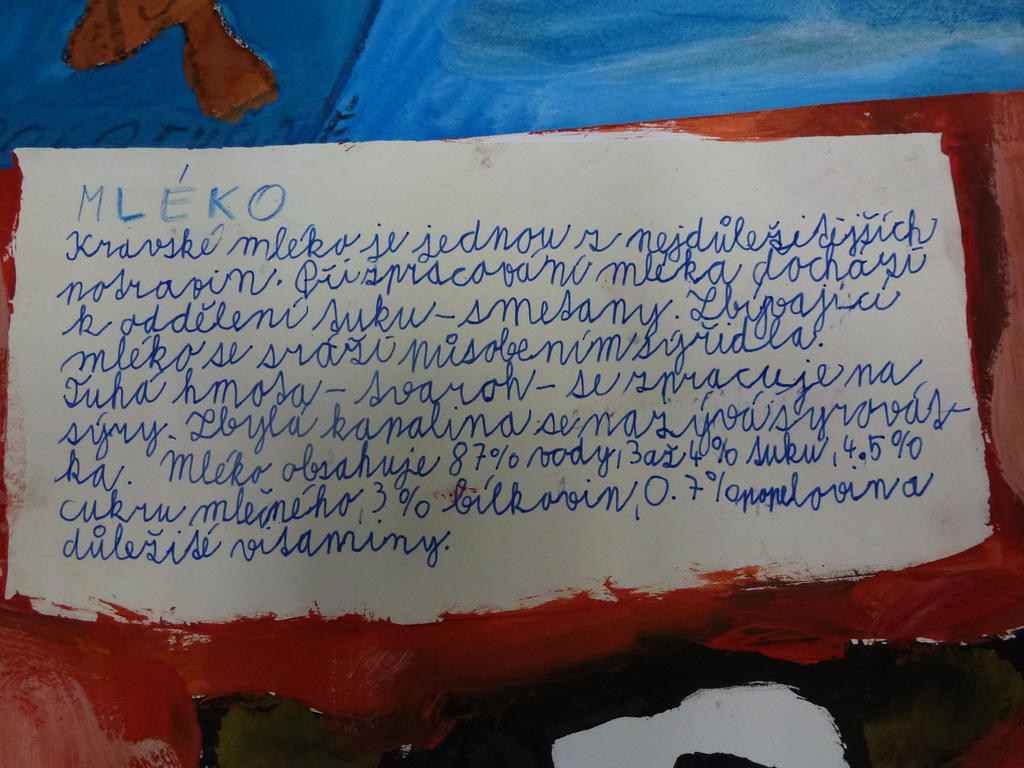 MLÉKO
Kravské mléko je jednou z nejdůležitějších
potravin. Při zpracování mléka dochází
k oddělení tuku - smetany. Zbývající
mléko se sráží působením syřidla.
Tuhá hmota - tvaroh - se zpracuje na
sýry. Zbylá kapalina se nazývá syrovát-
ka. Mléko obsahuje 87% vody, 3 až 4% tuku, 4.5%
cukru mléčného, 3% bílkovin, 0.7% popelovin a
důležité vitamíny.